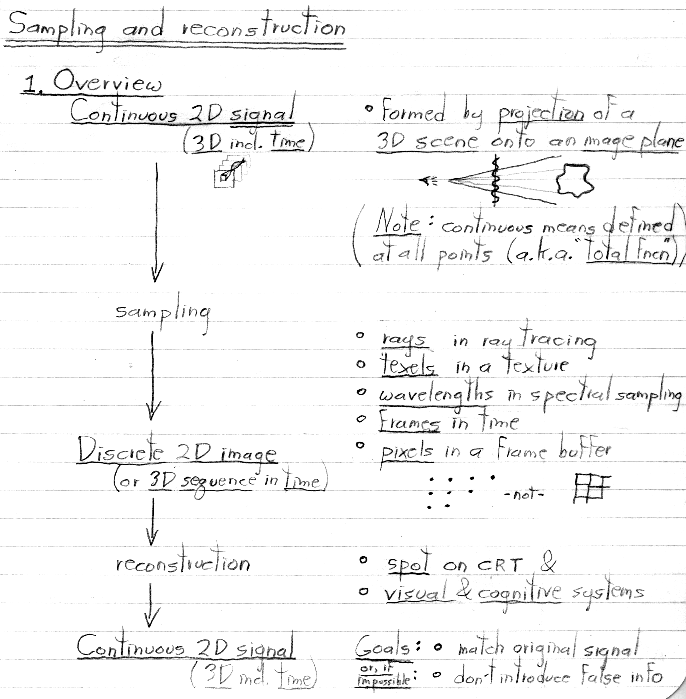 Sampling and reconstruction
1. Overview
Continuous 2D signal
(3D incl. time)
• Formed by projection of a
3D scene onto an mage plane
(Note: continuous means defined
at all points (a.k.a. "total fncn"))
sampling
• rays in ray tracing
• texels in a texture
• wavelengths in spectral sampling
• frames in time
• pixels in a frame buffer
Discrete 2D image
(or 3D sequence in time)
-not-
reconstruction
• spot on CRT &
• visual & cognitive systems
Continuous 2D signal
(3D incl. time)
Goals: • match original signal
or, if
impossible: • don't introduce false info